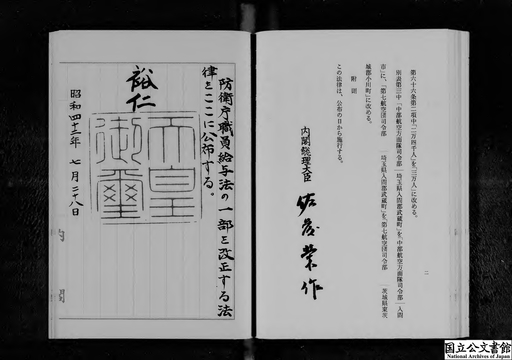 第六十六条第二項中「二万四千人」を「三万人」に改める。
別表第三中「中部航空方面隊司令部｜埼玉県入間郡武蔵町」を「中部航空方面隊司令部｜入間
市」に、「第七航空団司令部｜埼玉県入間郡武蔵町」を「第七航空団司令部｜茨城県東茨
城郡小川町」に改める。
附則
この法律は、公布の日から施行する。
内閣総理大臣 佐藤栄作
二
防衛庁職員給与法の一部を改正する法
律をここに公布する。
裕仁
天皇
御璽
昭和四十三年 七月二十八日
内 閣
国立公文書館
National Archives of Japan